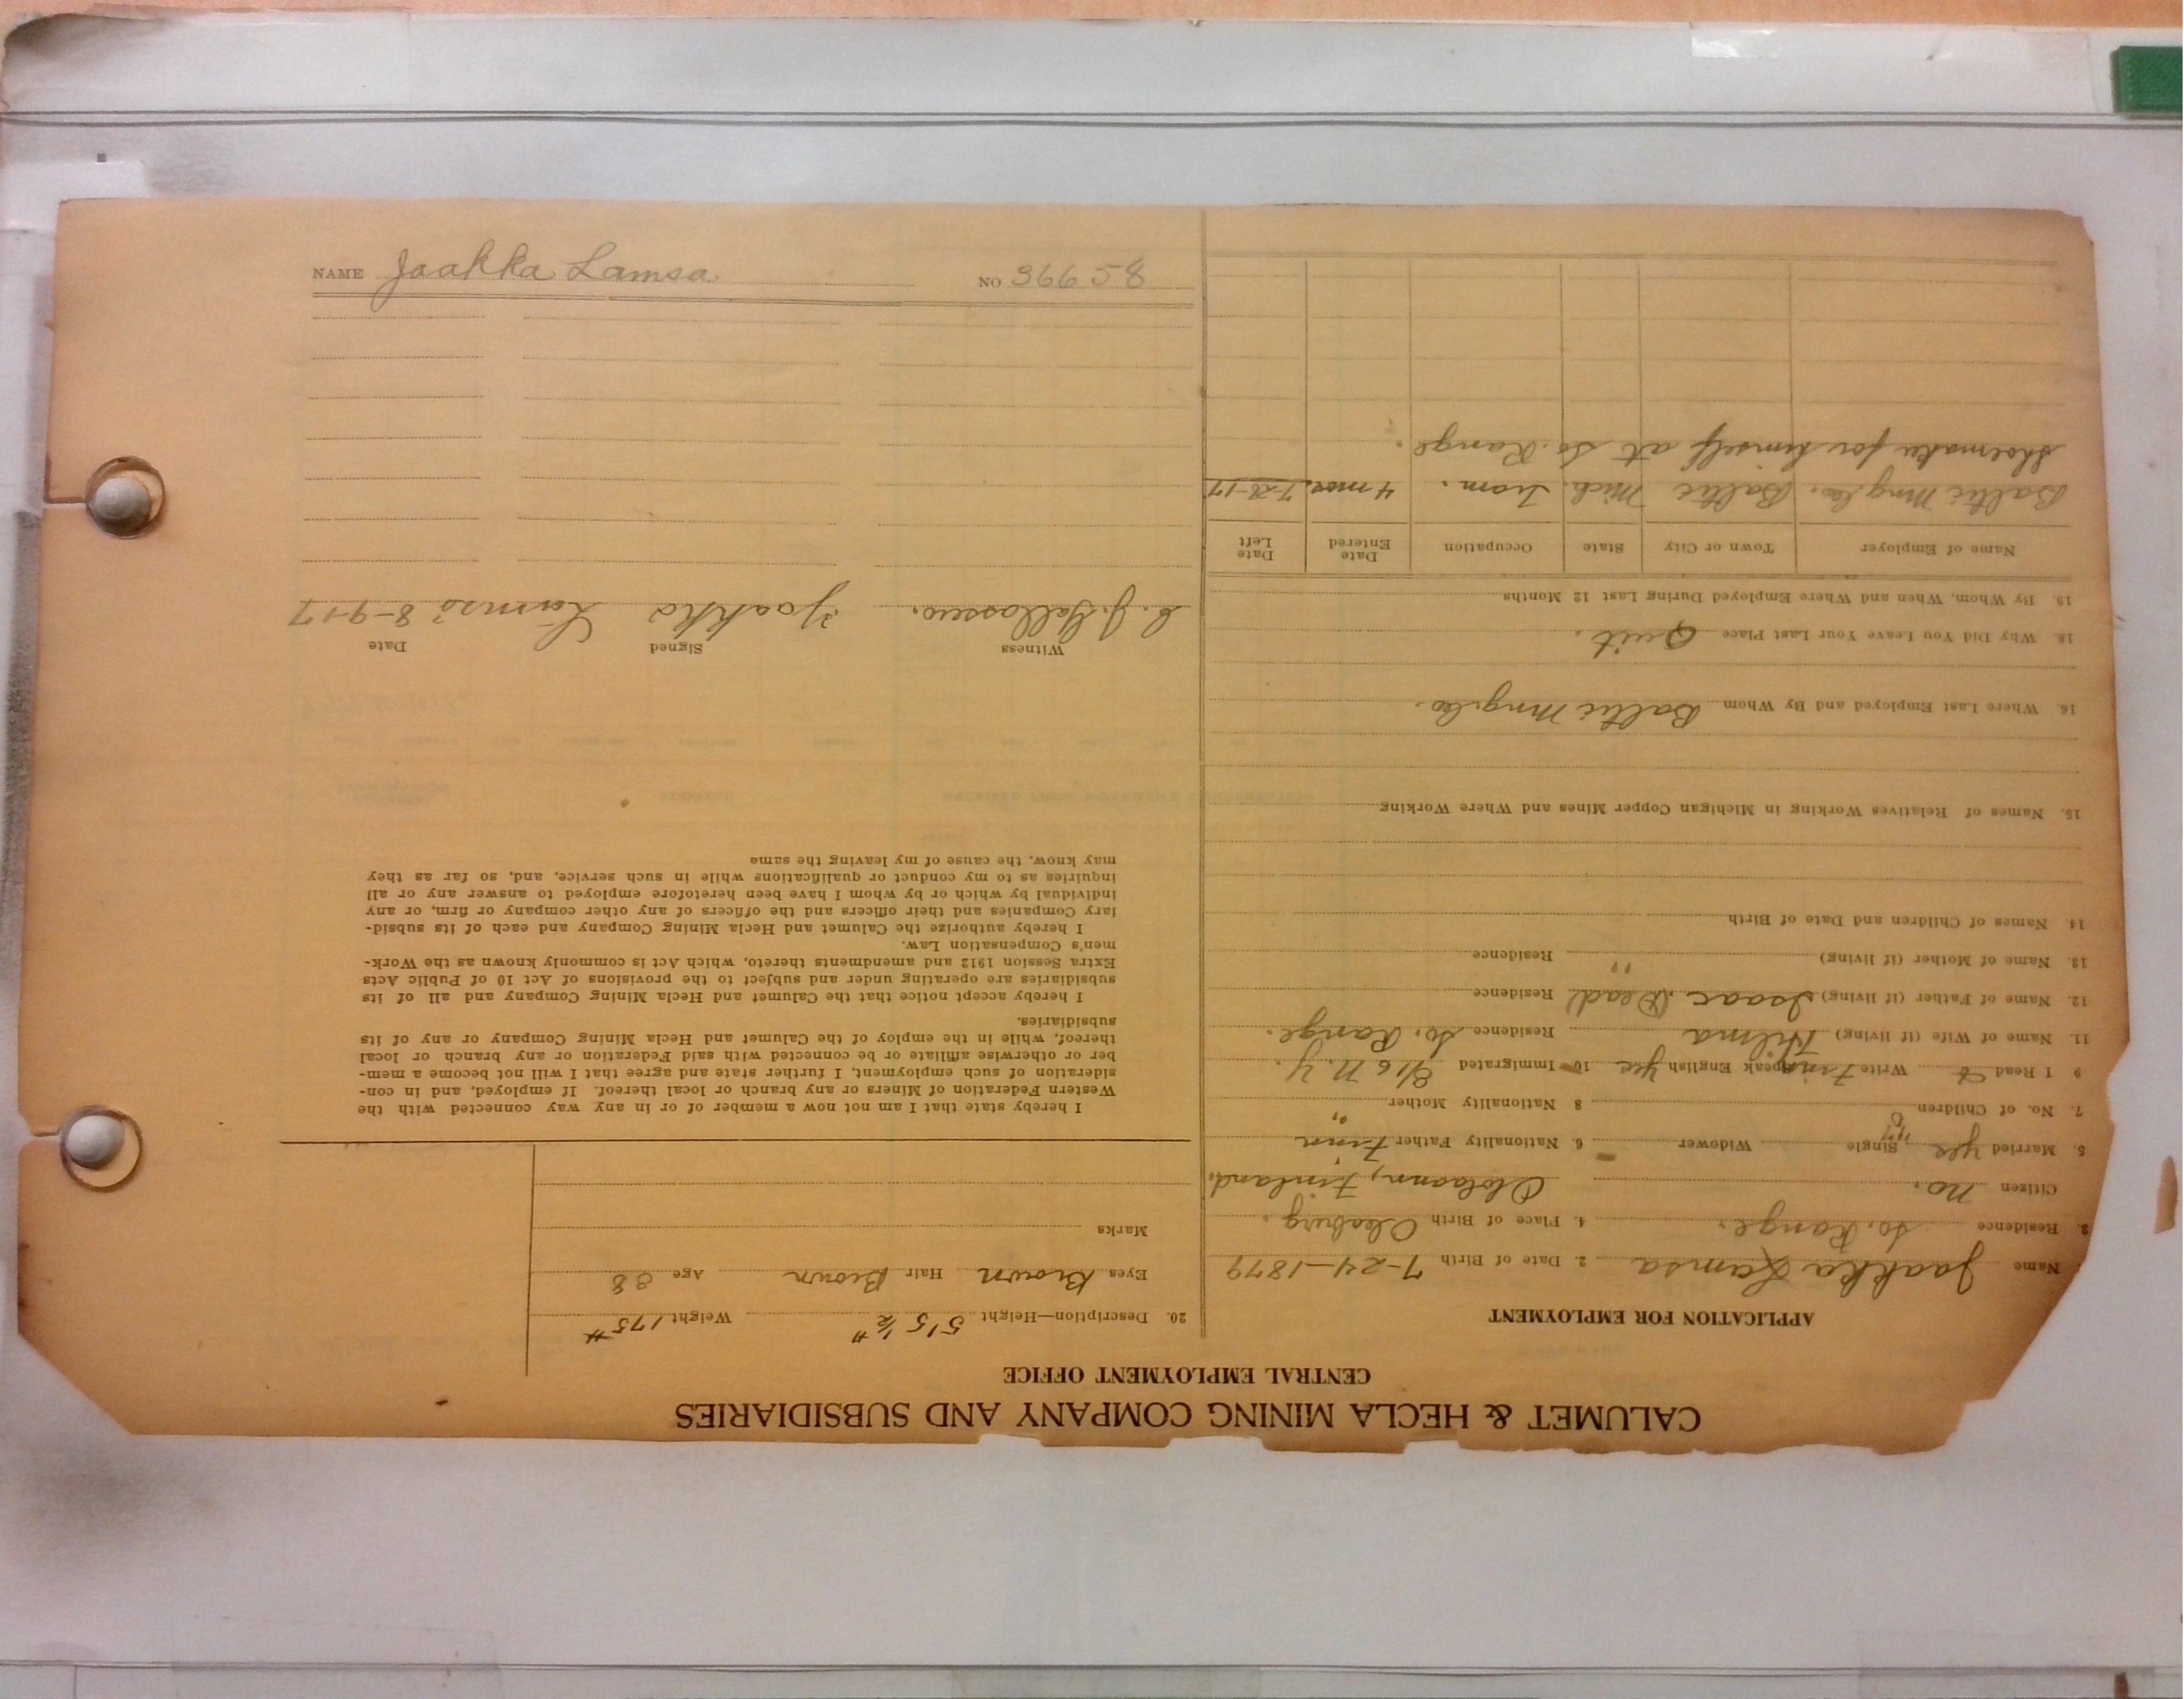 CALUMET & HECLA MINING COMPANY AND SUBSIDIARIES
CENTRAL EMPLOYMENT OFFICE
APPLICATION FOR EMPLOYMENT
Name Jaakka Lamsa 2. Date of Birth 7-24-1879
3. Residence So. Range. 4. Place of Birth Oleaburg.
Citizen no. Finland.
5. Married yes Single Widower 6. Nationality Father Finn
7. No. of Children 8 Nationality Mother "
9 I Read & Write Finn Speak English yes 10 Immigrated 8/16 N.Y.
11. Name of Wife (if living) Hilma Residence So. Range.
12. Name of Father (if living) Isaac Dead Residence
13. Name of Mother (if living) " Residence
14. Names of Children and Date of Birth
15. Names of Relatives Working in Michigan Copper Mines and Where Working
16. Where Last Employed and By Whom Baltic Mng. Co.
18. Why Did You Leave Your Last Place Quit.
19. By Whom, When and Where Employed During Last 12 Months
Name of Employer Town or City State Occupation Date Entered Date Left
Baltic Mng. Co. Baltic Mich. Tram. 4 mos. 7-28-17
Shoemaker for himself at So. Range.
20. Description—Height 5'5 1/2" Weight 175#
Eyes Brown Hair Brown Age 38
Marks
I hereby state that I am not now a member of or in any way connected with the
Western Federation of Miners or any branch or local thereof. If employed, and in con-
sideration of such employment, I further state and agree that I will not become a mem-
ber or otherwise affiliate or be connected with said Federation or any branch or local
thereof, while in the employ of the Calumet and Hecla Mining Company or any of its
subsidiaries.
I hereby accept notice that the Calumet and Hecla Mining Company and all of its
subsidiaries are operating under and subject to the provisions of Act 10 of Public Acts
Extra Session 1912 and amendments thereto, which Act is commonly known as the Work-
men's Compensation Law.
I hereby authorize the Calumet and Hecla Mining Company and each of its subsid-
iary Companies and their officers and the officers of any other company or firm, or any
individual by which or by whom I have been heretofore employed to answer any or all
inquiries as to my conduct or qualifications while in such service, and, so far as they
may know, the cause of my leaving the same
Witness Signed Date
Jaakko Lämsä 8-9-17
NAME Jaakka Lamsa NO 36658